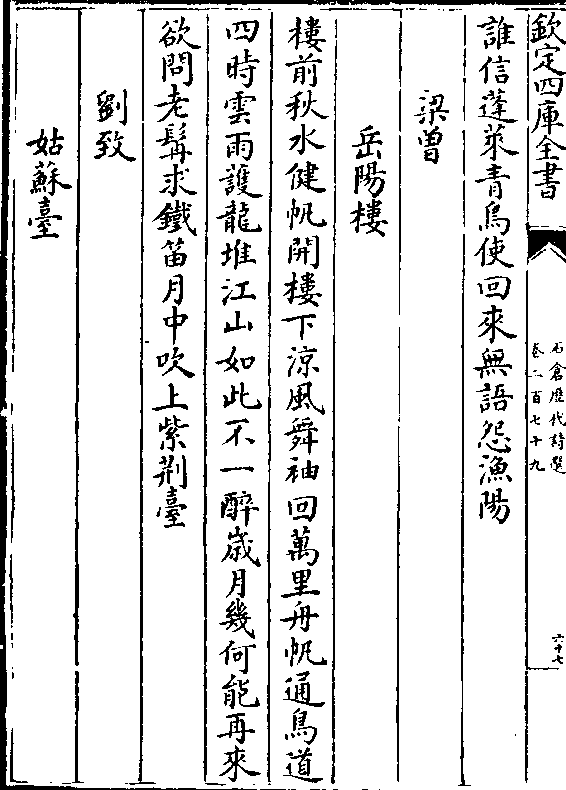 欽定四庫全書
石倉歷代詩選
卷二百七十九
六十七
誰信蓬萊青鳥使回來無語怨漁陽
梁曾
岳陽樓
樓前秋水健帆開樓下涼風舞袖回萬里舟帆通鳥道
四時雲雨護龍堆江山如此不一醉歲月幾何能再來
欲問老髯求鐵笛月中吹上紫荆臺
劉致
姑蘇臺